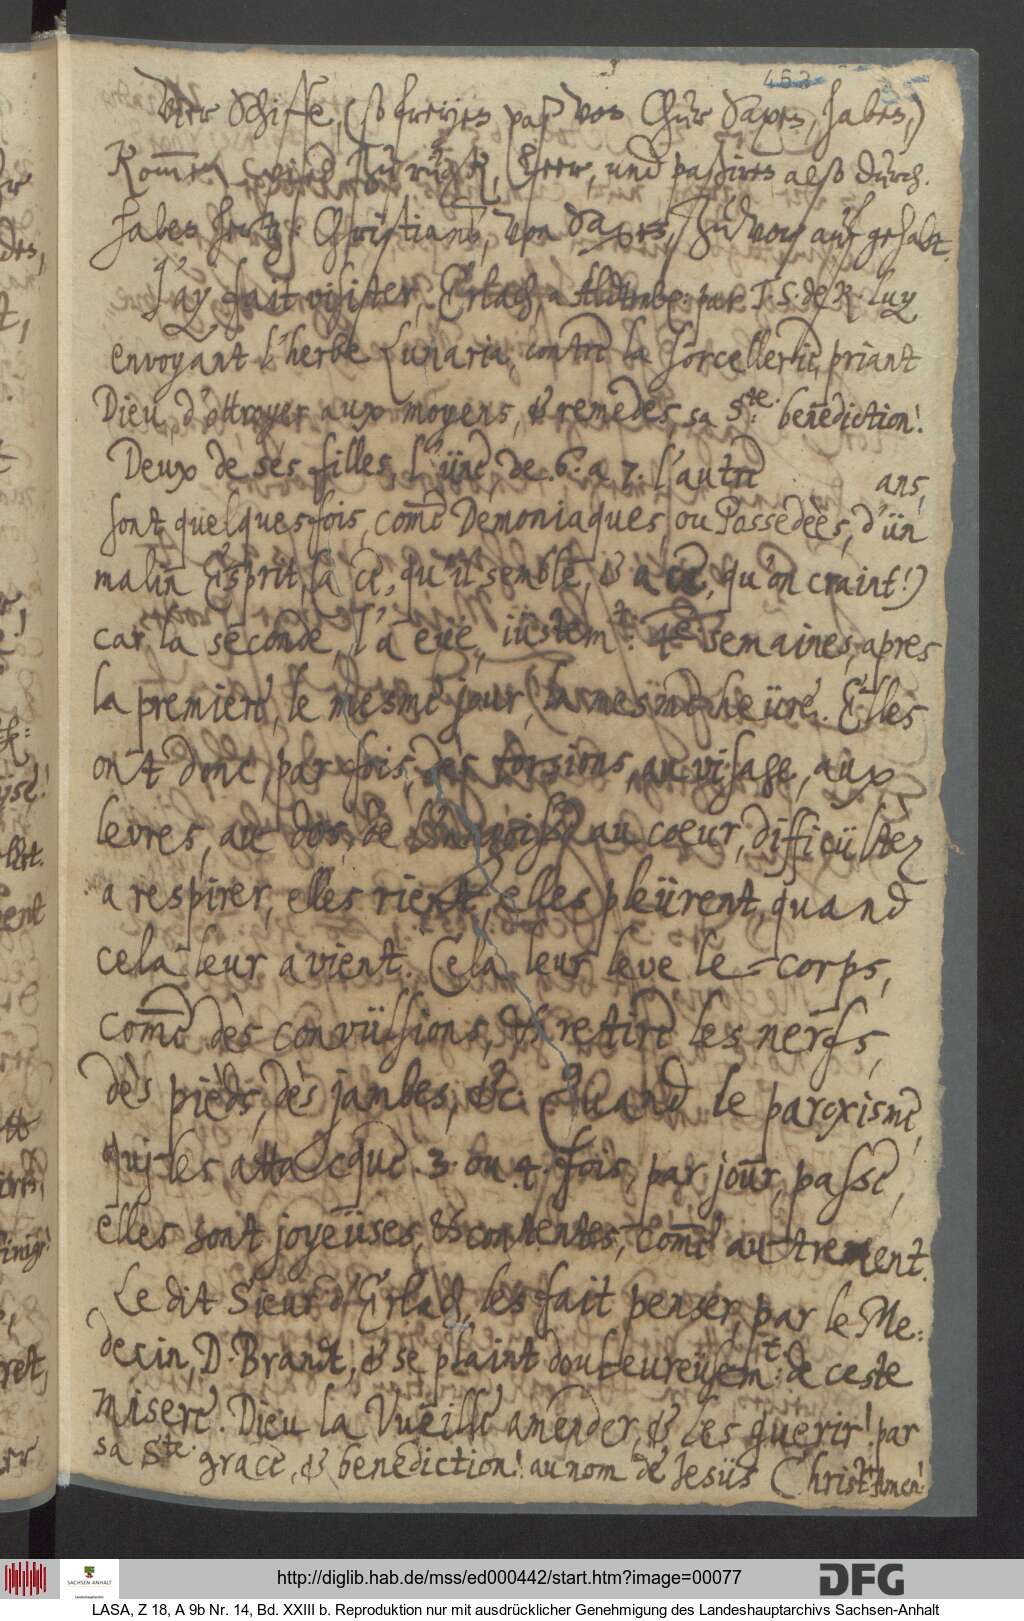 453
Vier Schiffe, (so freyen paß von Chur Saxen, haben,)
Kommen wied Zurück, Leer, und paßiren also durch.
haben hertzog Christians, von Saxen, Zuvor auf gehabt.
J'ay fait visiter, Erlach, a Altemb: par T. S. de R. luy
envoyant l'herbe Lunaria, contre la sorcellerie, priant
Dieu, d'ottroyer aux moyens, & remedes, sa S.te benediction!
Deux de ses filles, l'üne, de .6. a 7. l'autre ans,
sont quelquesfois, come Demoniaques, ou Possedées, d'ün
malin Esprit, (a ce, qu'il semble, & a ce, qu'on craint!)
car la seconde, l'a eüe, iüstem.t: 4e semaines, apres
la premiere, le mesme jour, la mesme heüre. Elles
ont donc, par fois, dès torsions, au visage, aux
levres, au dos, de l'angoisse au coeur, difficültez
a respirer, elles rient, elles pleürent, quand
cela leur avient. Cela leur leve le corps,
come dès convülsions, & retire les nerfs,
dès pièds, dès jambes, &c. Quand le paroxisme,
qui les attacque .3. ou .4. fois, par jour, passe,
elles sont joyeüses, & contentes, come autrement.
Le dit Sieur d'Erlach, les fait penser, par le Me:
decin, D. Brandt, & se plaint douleureüsem.t de ceste
misere. Dieu la Vueille amender, & les guerir! par
sa S.te grace, & benediction! au nom de Jesüs Christ! Amen!
http://diglib.hab.de/mss/ed000442/start.htm?image=00077
SACHSEN-ANHALT
DFG
LASA, Z 18, A 9b Nr. 14, Bd. XXIII b. Reproduktion nur mit ausdrücklicher Genehmigung des Landeshauptarchivs Sachsen-Anhalt